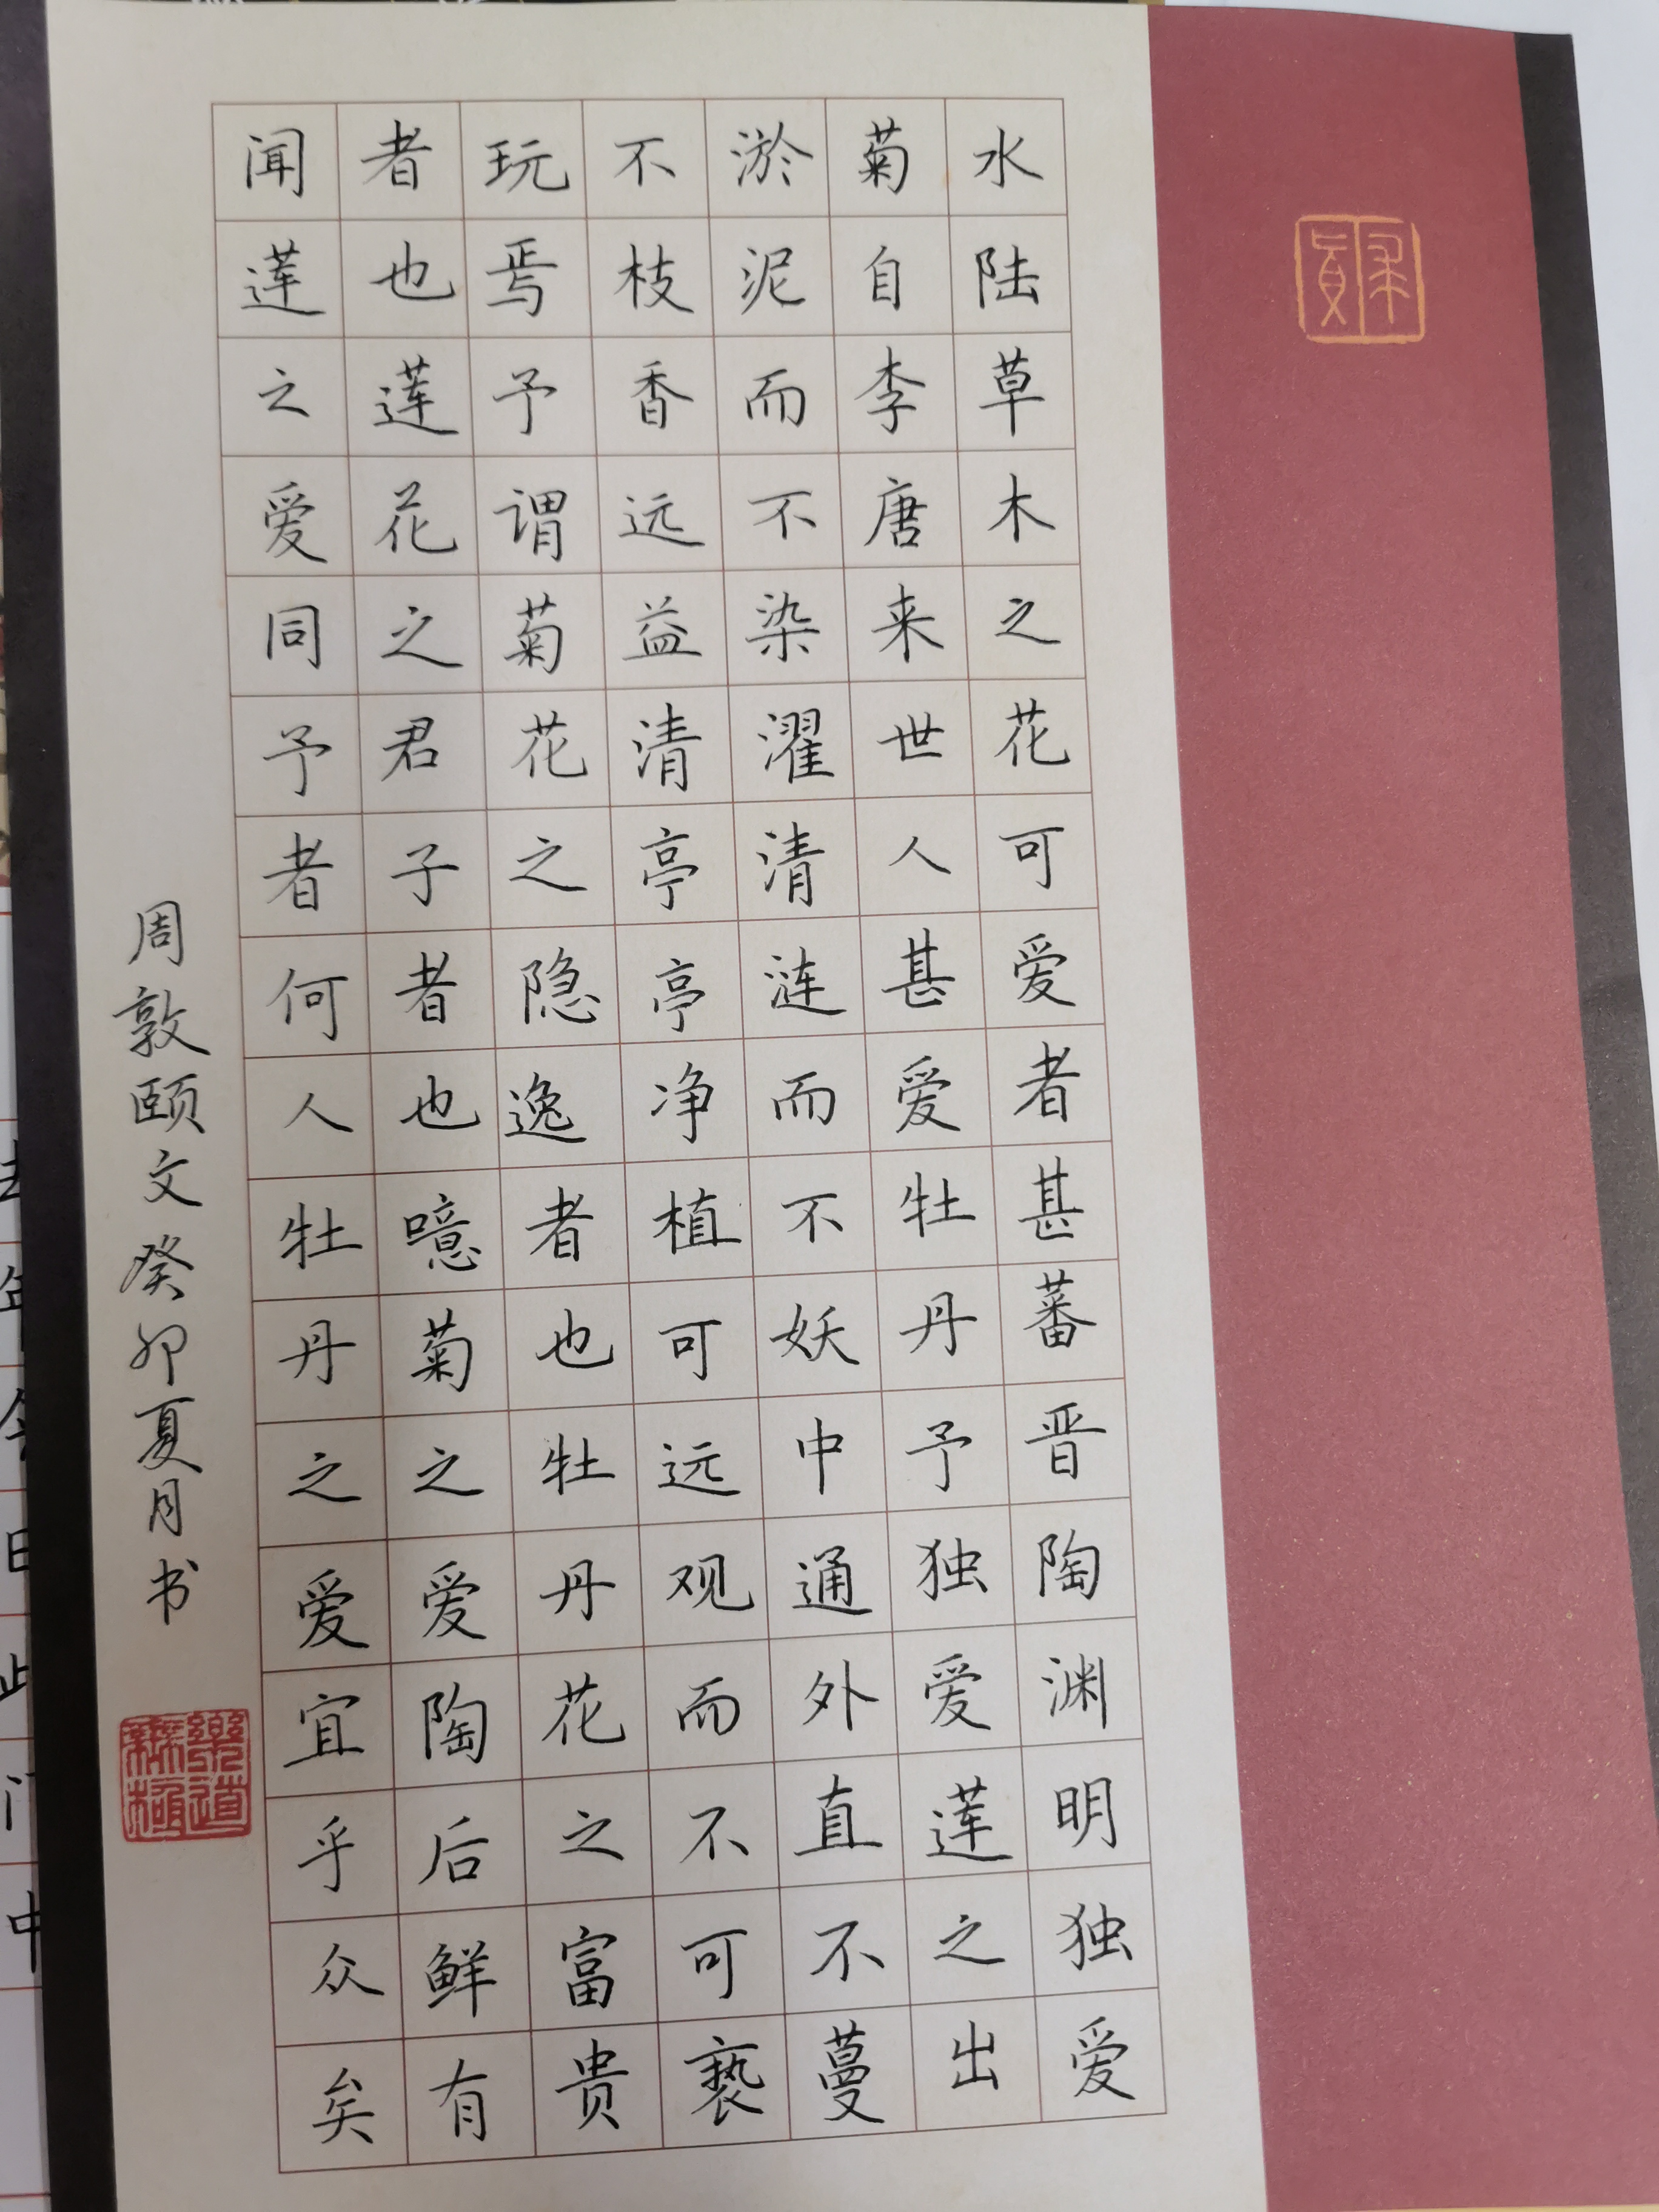 水陆草木之花可爱者甚蕃晋陶渊明独爱
菊自李唐来世人甚爱牡丹予独爱莲之出
淤泥而不染濯清涟而不妖中通外直不蔓
不枝香远益清亭亭净植可远观而不可亵
玩焉予谓菊花之隐逸者也牡丹花之富贵
者也莲花之君子者也噫菊之爱陶后鲜有
闻莲之爱同予者何人牡丹之爱宜乎众矣
周敦颐文癸卯夏月书
樂道無極